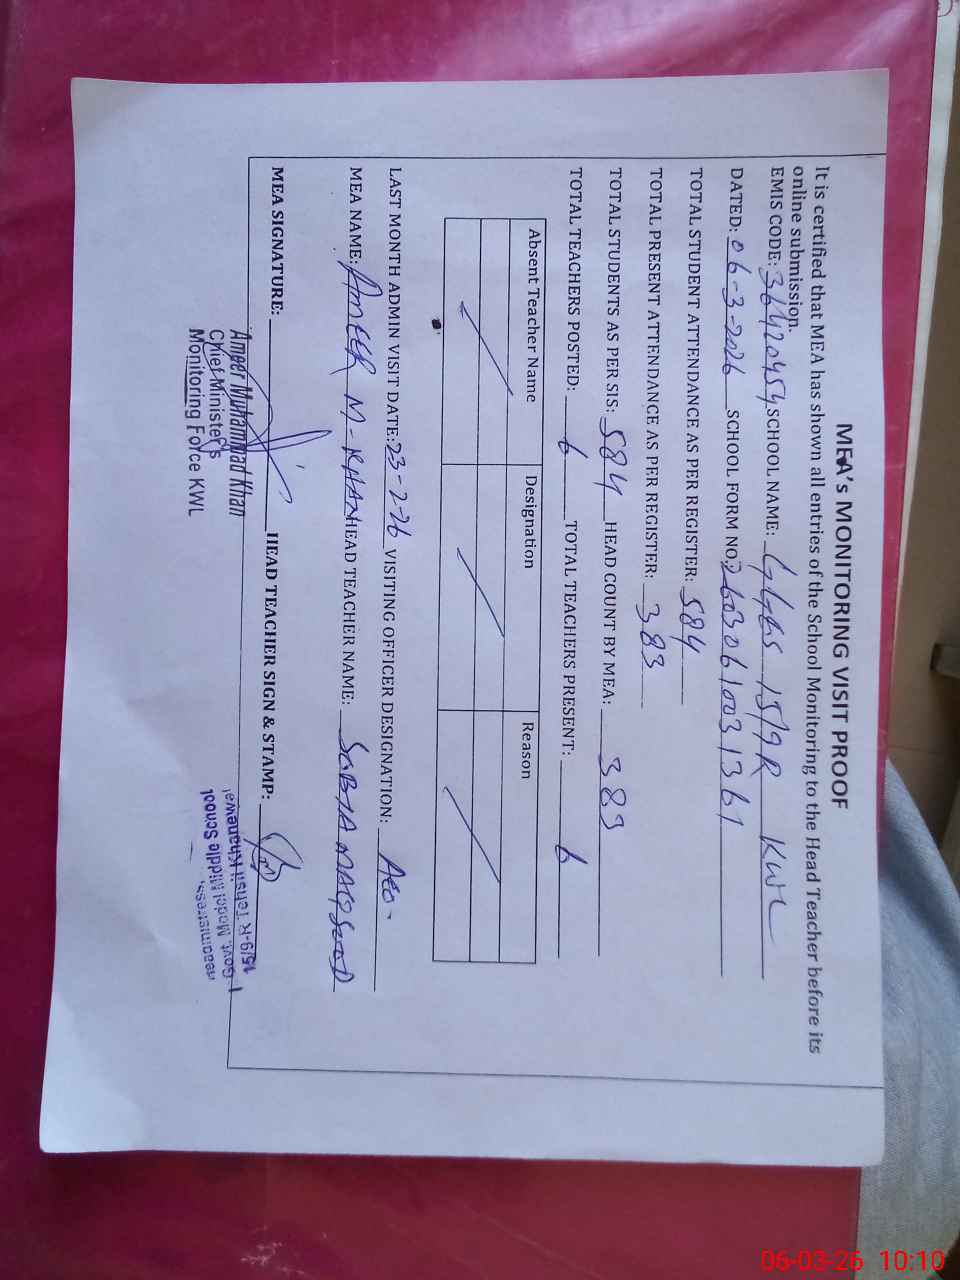 MEA's MONITORING VISIT PROOF
It is certified that MEA has shown all entries of the School Monitoring to the Head Teacher before its
online submission.
EMIS CODE: 36420454 SCHOOL NAME: GGES 15/9R KWL
DATED: 06-3-2026 SCHOOL FORM NO: 26030610031361
TOTAL STUDENT ATTENDANCE AS PER REGISTER: 584
TOTAL PRESENT ATTENDANCE AS PER REGISTER: 383
TOTAL STUDENTS AS PER SIS: 584 HEAD COUNT BY MEA: 383
TOTAL TEACHERS POSTED: 6 TOTAL TEACHERS PRESENT: 6
Absent Teacher Name Designation Reason
LAST MONTH ADMIN VISIT DATE: 23-2-26 VISITING OFFICER DESIGNATION: AEO-
MEA NAME: AMEER M-KHAN HEAD TEACHER NAME: SOBIA MAQSOOD
MEA SIGNATURE: HEAD TEACHER SIGN & STAMP:
Ameer Muhammad Khan
Chief Minister's
Monitoring Force KWL
Headmistress
Govt. Model Middle School
15/9-R Tehsil Khanewal
06-03-26 10:10